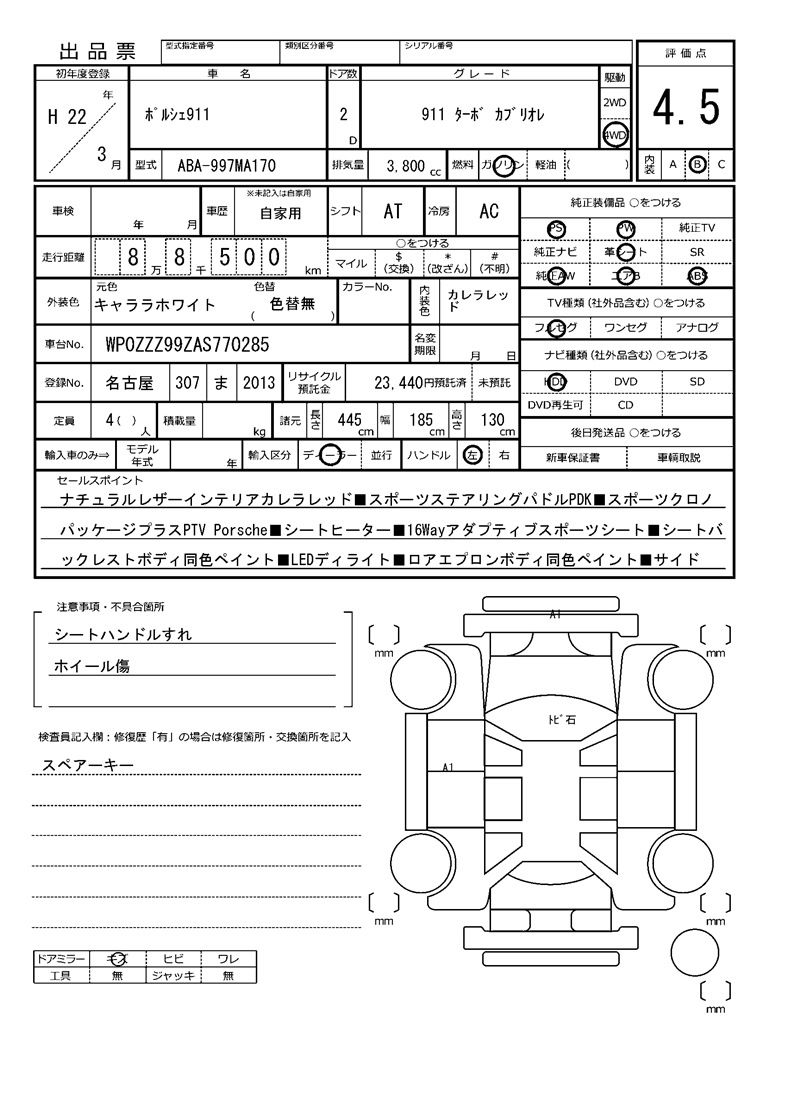 出品票
型式指定番号 類別区分番号 シリアル番号
評価点
4.5
内装 A B C
初年度登録 車名 ドア数 グレード 駆動
H 22 年 3 月
ﾎﾟﾙｼｪ911
2 D
911 ﾀｰﾎﾞ ｶﾌﾞﾘｵﾚ
2WD
4WD
型式 ABA-997MA170 排気量 3,800 cc 燃料 ガソリン 軽油 ( )
車検 年 月 車歴 ※未記入は自家用 自家用 シフト AT 冷房 AC
走行距離 8 万 8 千 5 0 0 km
○をつける
マイル $ (交換) * (改ざん) # (不明)
外装色 元色 キャララホワイト 色替 色替無 ( ) カラーNo. 内装色 カレラレッド
車台No. WP0ZZZ99ZAS770285 名変期限 月 日
登録No. 名古屋 307 ま 2013 リサイクル預託金 23,440円預託済 未預託
定員 4( ) 人 積載量 kg 諸元 長さ 445 cm 幅 185 cm 高さ 130 cm
輸入車のみ⇒ モデル年式 年 輸入区分 ディーラー 並行 ハンドル 左 右
純正装備品 ○をつける
PS PW 純正TV
純正ナビ 革シート SR
純正AW エアB ABS
TV種類(社外品含む)○をつける
フルセグ ワンセグ アナログ
ナビ種類(社外品含む)○をつける
HDD DVD SD
DVD再生可 CD
後日発送品 ○をつける
新車保証書 車輌取説
セールスポイント
ナチュラルレザーインテリアカレラレッド■スポーツステアリングパドルPDK■スポーツクロノ
パッケージプラスPTV Porsche■シートヒーター■16Wayアダプティブスポーツシート■シートバ
ックレストボディ同色ペイント■LEDディライト■ロアエプロンボディ同色ペイント■サイド
注意事項・不具合箇所
シートハンドルすれ
ホイール傷
検査員記入欄：修復歴「有」の場合は修復箇所・交換箇所を記入
スペアーキー
ドアミラー キズ ヒビ ワレ
工具 無 ジャッキ 無
A1
mm mm
ﾄﾋﾞ石
A1
mm mm
mm